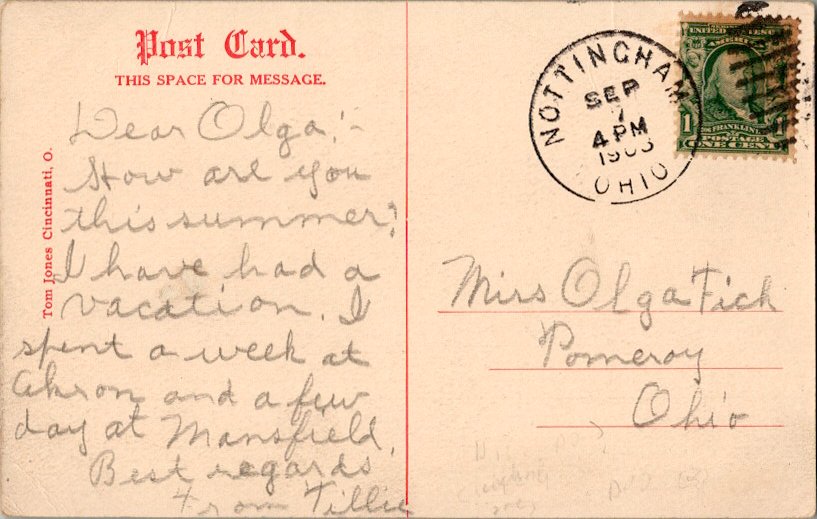 Post Card.
THIS SPACE FOR MESSAGE.
Dear Olga:-
How are you
this summer?
I have had a
vacation. I
spent a week at
Akron and a few
day at Mansfield.
Best regards
From Tillie
Tom Jones Cincinnati, O.
NOTTINGHAM
SEP
7
4 PM
OHIO
UNITED STATES
AMERICA
1
FRANKLIN
POSTAGE
ONE CENT
Miss Olga Fick
Pomeroy
Ohio